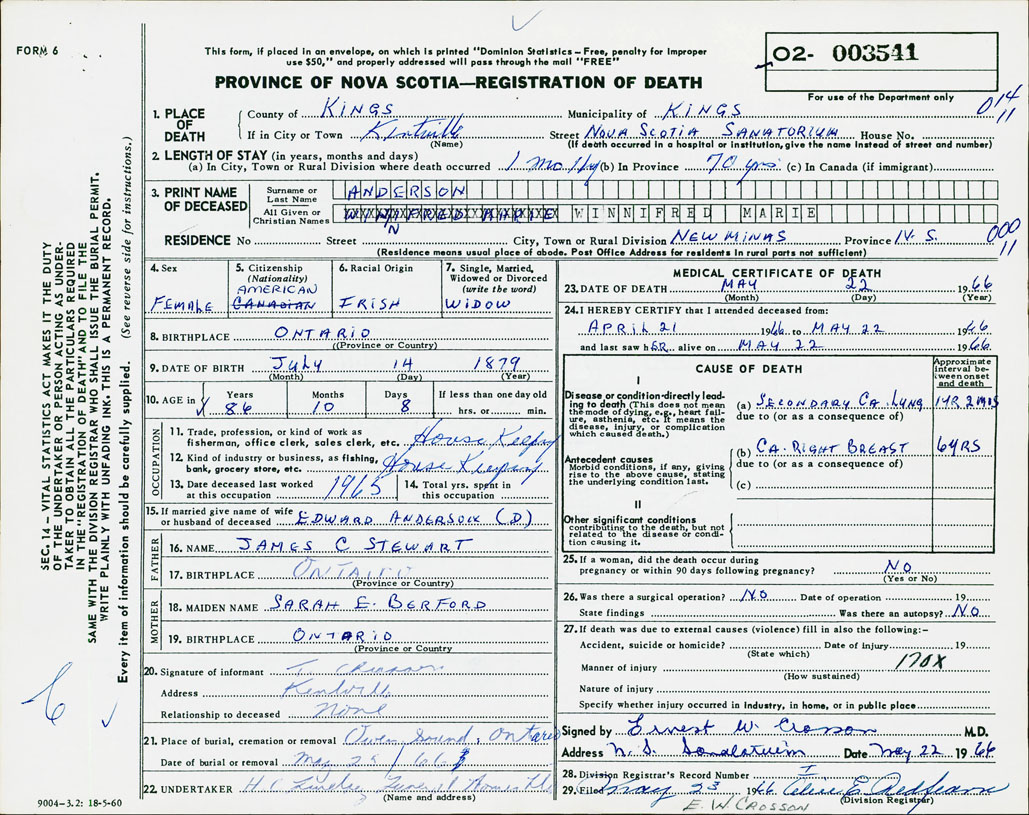 FORM 6
This form, if placed in an envelope, on which is printed "Dominion Statistics – Free, penalty for improper
use $50," and properly addressed will pass through the mail "FREE"
PROVINCE OF NOVA SCOTIA—REGISTRATION OF DEATH
02- 003541
For use of the Department only
014
11
1. PLACE OF DEATH
County of KINGS Municipality of KINGS
If in City or Town Kentville Street NOVA SCOTIA SANATORIUM House No.
(Name) (If death occurred in a hospital or institution, give the name instead of street and number)
2. LENGTH OF STAY (in years, months and days)
(a) In City, Town or Rural Division where death occurred 1 mo (b) In Province 70 yrs (c) In Canada (if immigrant)
3. PRINT NAME OF DECEASED
Surname or Last Name ANDERSON
All Given or Christian Names WINIFRED MARIE WINNIFRED MARIE
N
RESIDENCE No Street City, Town or Rural Division NEW MINAS Province N. S.
000
11
(Residence means usual place of abode. Post Office Address for residents in rural parts not sufficient)
4. Sex
FEMALE
5. Citizenship
(Nationality)
AMERICAN
CANADIAN
6. Racial Origin
IRISH
7. Single, Married,
Widowed or Divorced
(write the word)
WIDOW
8. BIRTHPLACE ONTARIO
((Province or Country)
9. DATE OF BIRTH July 14 1879
(Month) (Day) (Year)
10. AGE in Years Months Days If less than one day old
86 10 8 hrs. or min.
OCCUPATION
11. Trade, profession, or kind of work as
fisherman, office clerk, sales clerk, etc. House Keeping
12. Kind of industry or business, as fishing,
bank, grocery store, etc. House Keeping
13. Date deceased last worked
at this occupation 1965
14. Total yrs. spent in
this occupation
15. If married give name of wife
or husband of deceased EDWARD ANDERSON (D)
FATHER
16. NAME JAMES C STEWART
17. BIRTHPLACE ONTARIO
(Province or Country)
MOTHER
18. MAIDEN NAME SARAH E. BERFORD
19. BIRTHPLACE ONTARIO
(Province or Country)
20. Signature of informant Crosson
Address Kentville
Relationship to deceased none
21. Place of burial, cremation or removal Owen Sound, Ontario
Date of burial or removal May 25 / 66
22. UNDERTAKER H C Lindsay Funeral Home
(Name and address)
9004–3.2: 18-5-60
MEDICAL CERTIFICATE OF DEATH
23. DATE OF DEATH MAY 22 1966
(Month) (Day) (Year)
24. I HEREBY CERTIFY that I attended deceased from:
APRIL 21 1966 to MAY 22 1966
and last saw hER alive on MAY 22 1966
CAUSE OF DEATH
Approximate
interval be-
tween onset
and death
I
Disease or condition-directly lead-
ing to death (This does not mean
the mode of dying, e.g., heart fail-
ure, asthenia, etc. It means the
disease, injury, or complication
which caused death.)
(a) SECONDARY CA. LUNG 1YR 2MOS
due to (or as a consequence of)
Antecedent causes
Morbid conditions, if any, giving
rise to the above cause, stating
the underlying condition last.
(b) CA. RIGHT BREAST 6YRS
due to (or as a consequence of)
(c)
II
Other significant conditions
contributing to the death, but not
related to the disease or condi-
tion causing it.
25. If a woman, did the death occur during
pregnancy or within 90 days following pregnancy? NO
(Yes or No)
26. Was there a surgical operation? NO Date of operation 19
State findings Was there an autopsy? NO
27. If death was due to external causes (violence) fill in also the following:–
Accident, suicide or homicide? Date of injury 19
(State which)
Manner of injury 170X
(How sustained)
Nature of injury
Specify whether injury occurred in industry, in home, or in public place
Signed by Ernest W. Crosson M.D.
Address N. S. Sanatorium Date May 22 1966
28. Division Registrar's Record Number
29. Filed May 23 1966
(Division Registrar)
E. W. CROSSON
SEC. 14 – VITAL STATISTICS ACT MAKES IT THE DUTY
OF THE UNDERTAKER OR PERSON ACTING AS UNDER-
TAKER TO OBTAIN ALL THE PARTICULARS REQUIRED
IN THE "REGISTRATION OF DEATH" AND TO FILE THE
SAME WITH THE DIVISION REGISTRAR WHO SHALL ISSUE THE BURIAL PERMIT.
WRITE PLAINLY WITH UNFADING INK. THIS IS A PERMANENT RECORD.
Every item of information should be carefully supplied. (See reverse side for instructions.)
6